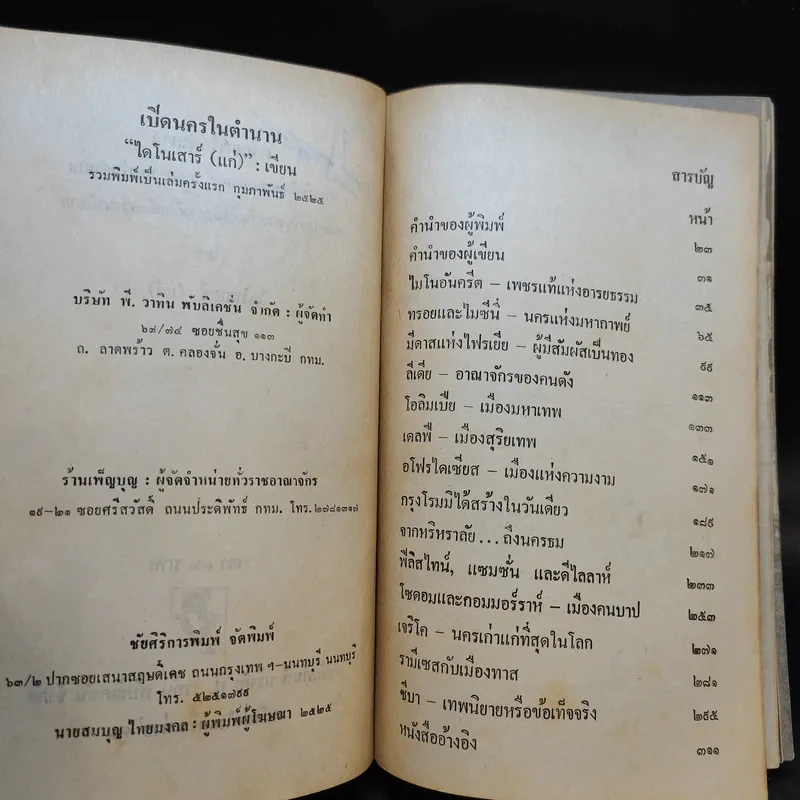 เปิดนครในตำนาน
“ไดโนเสาร์ (แก่)” : เขียน
รวมพิมพ์เป็นเล่มครั้งแรก กุมภาพันธ์ ๒๕๒๕
บริษัท พี. วาทิน พับลิเคชั่น จำกัด : ผู้จัดทำ
๖๙/๗๔ ซอยชื่นสุข ๑๑๓
ถ. ลาดพร้าว ต. คลองจั่น อ. บางกะปิ กทม.
ร้านเพ็ญบุญ : ผู้จัดจำหน่ายทั่วราชอาณาจักร
๑๙-๒๑ ซอยศรีสวัสดิ์ ถนนประดิพัทธ์ กทม. โทร. ๒๗๘๑๓๑๗
ชัยศิริการพิมพ์ จัดพิมพ์
๖๓/๒ ปากซอยเสนาสฤษดิ์เดช ถนนกรุงเทพ ฯ-นนทบุรี นนทบุรี
โทร. ๕๒๕๑๗๙๙
นายสมบุญ ไทยมงคล : ผู้พิมพ์ผู้โฆษณา ๒๕๒๕
สารบัญ
หน้า
คำนำของผู้พิมพ์ ๒๓
คำนำของผู้เขียน ๓๑
ไมโนอันครีต – เพชรแท้แห่งอารยธรรม ๓๕
ทรอยและไมซีนี่ – นครแห่งมหากาพย์ ๖๕
มีดาสแห่งไฟรเยีย – ผู้มีสัมผัสเป็นทอง ๙๙
ลีเดีย – อาณาจักรของคนดัง ๑๑๓
โอลิมเปีย – เมืองมหาเทพ ๑๓๓
เดลฟี – เมืองสุริยเทพ ๑๕๑
อโฟรไดเซียส – เมืองแห่งความงาม ๑๗๑
กรุงโรมมิได้สร้างในวันเดียว ๑๘๙
จากหริหราลัย...ถึงนครธม ๒๑๗
ฟีลิสไทน์, แซมซั่น และดีไลลาห์ ๒๓๓
โซดอมและกอมมอร์ราห์ – เมืองคนบาป ๒๕๓
เจริโค – นครเก่าแก่ที่สุดในโลก ๒๗๑
รามีเซสกับเมืองทาส ๒๘๑
ชีบา – เทพนิยายหรือข้อเท็จจริง ๒๙๕
หนังสืออ้างอิง ๓๑๑